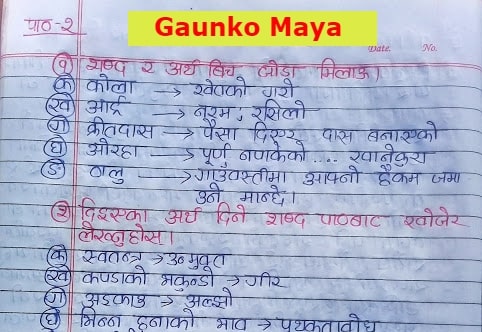 पाठ-२
Gaunko Maya
Date. No.
१ शब्द र अर्थ बिच जोडा मिलाऊ।
क कोला → खेतको गरो
ख आर्द्र → नरम; रसिलो
ग क्रीतदास → पैसा दिएर दास बनाएको
घ ओरहा → पूर्ण नपाकेको .... खानेकुरा
ङ ठालु → गाउँवस्तीमा आफ्नो हैकम जमा
उने मान्छे।
दिइएका अर्थ दिने शब्द पाठबाट खोजेर
लेख्नुहोस्।
क स्वतन्त्र → उन्मुक्त
ख कपडाको भकुन्डो → गीर
ग अड्काउ → अल्झो
घ भिन्न हुनाको भाव → पृथकताबोध